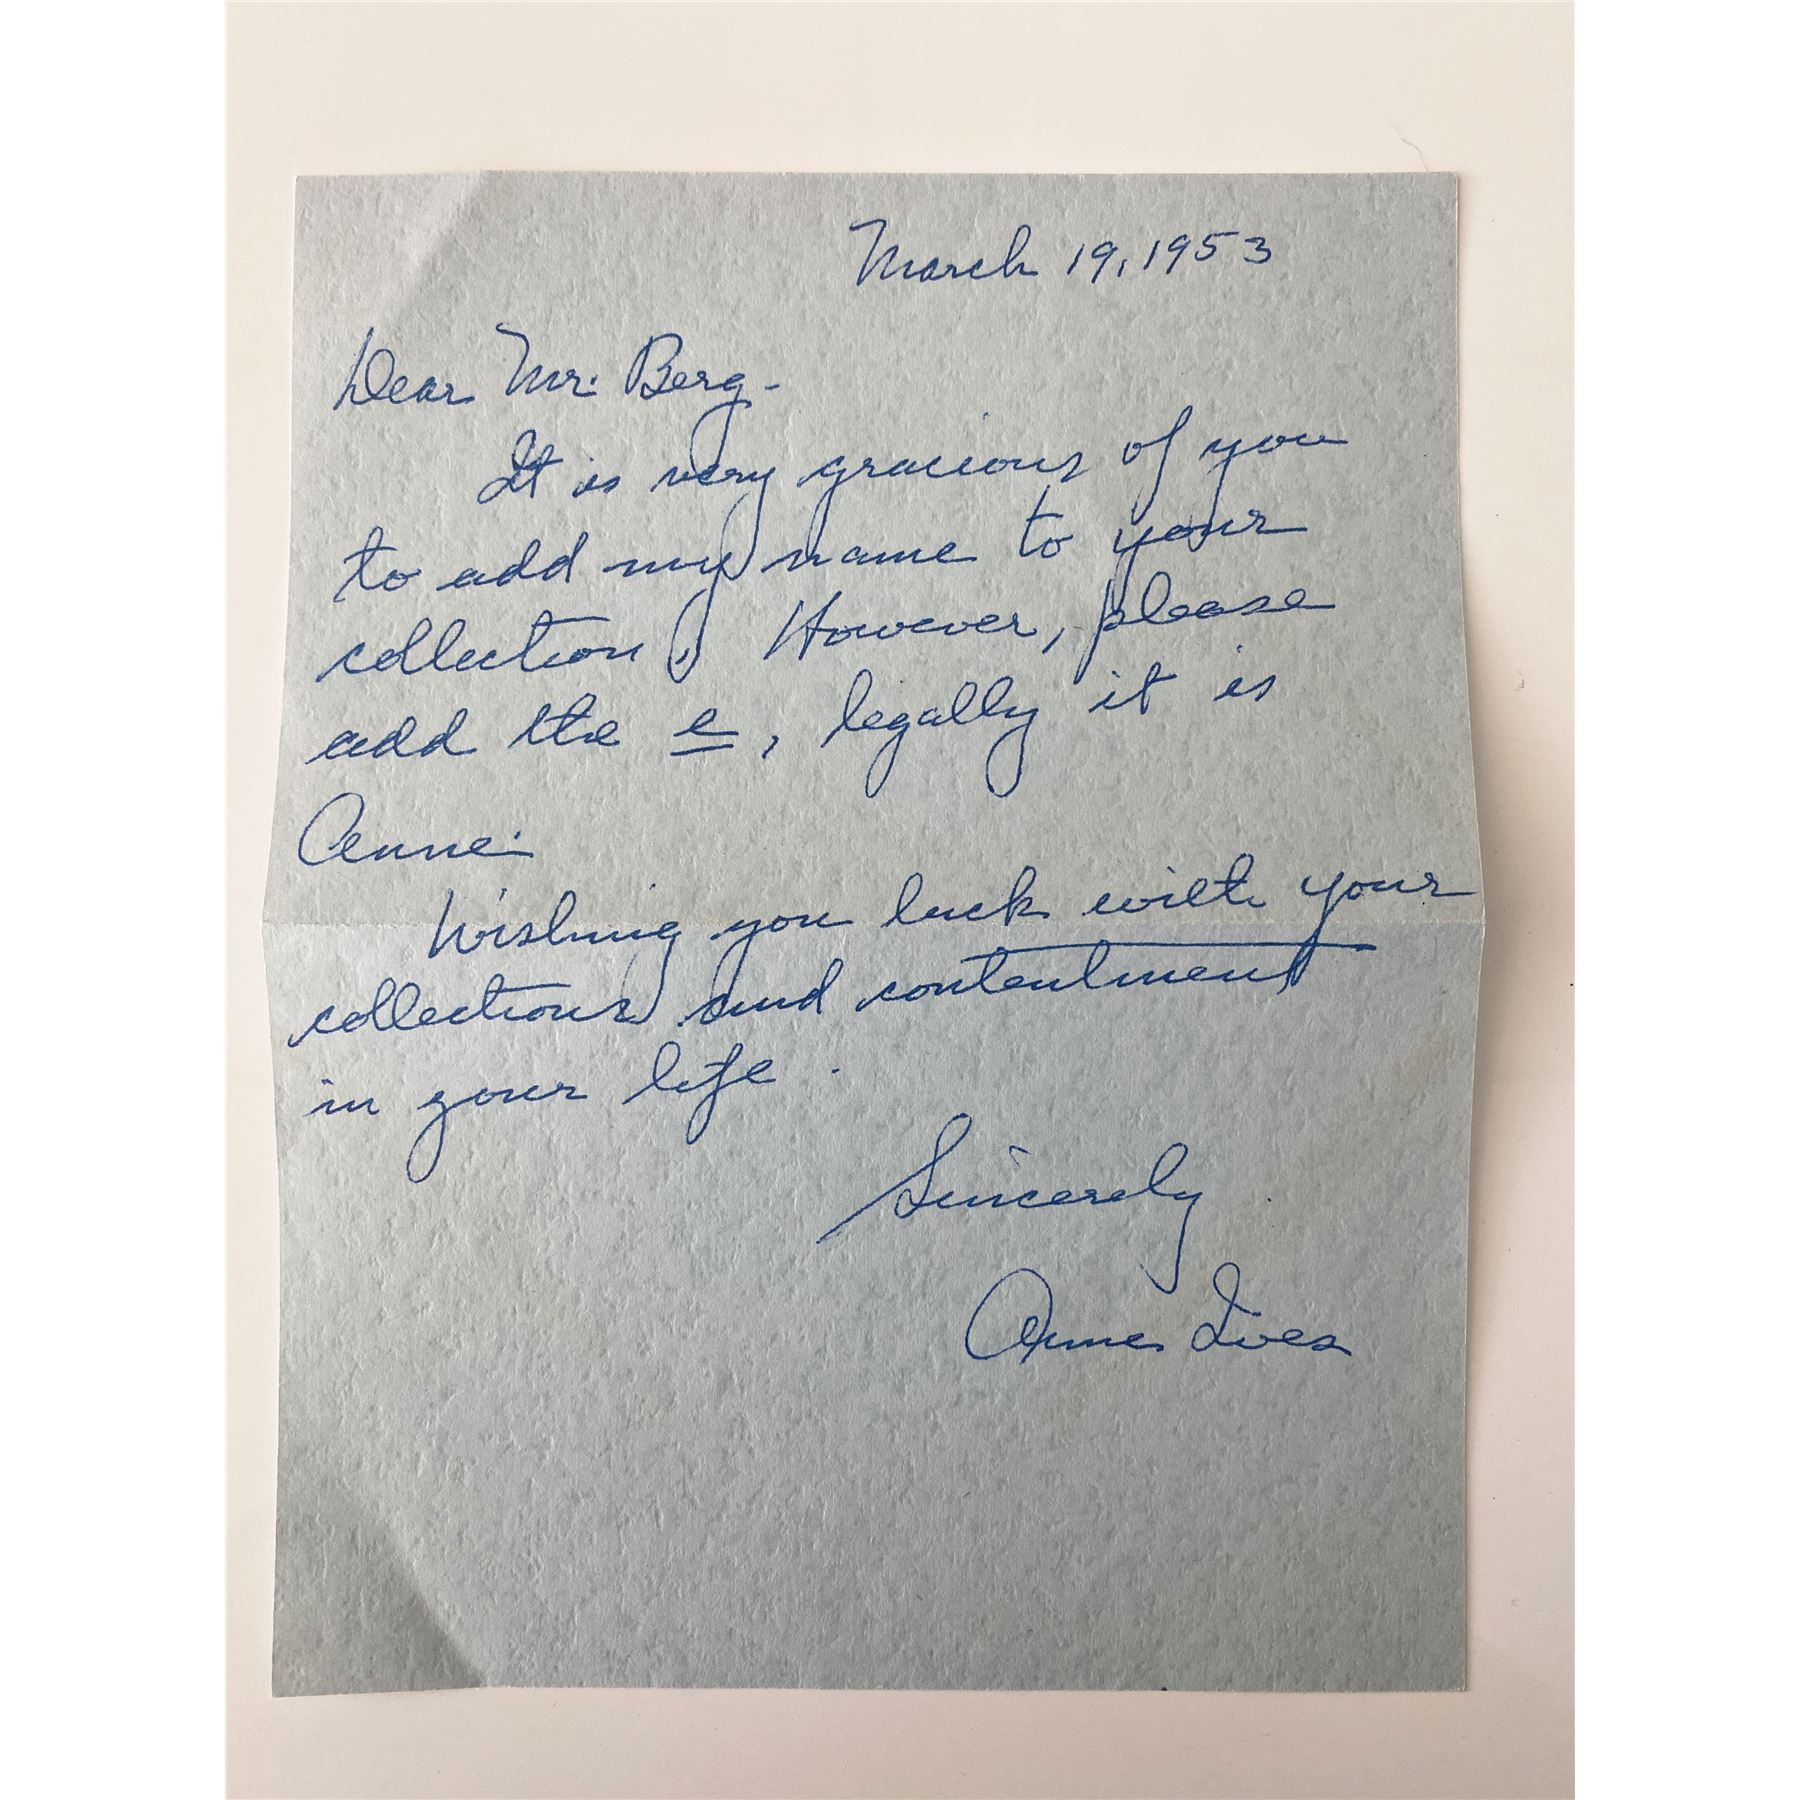 March 19, 1953
Dear Mr. Berg -
It is very gracious of you
to add my name to your
collection. However, please
add the e, legally it is
Anne.
Wishing you luck with your
collections and contentment
in your life.
Sincerely
Anne Ives